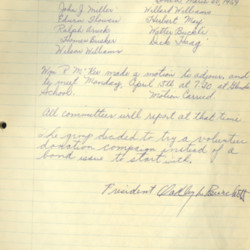 John J. Miller Willard Williams
Edwin Showers Herbert May
Ralph Walter Buckle
Dick Haag
Wilson Williams
Wm. P. McKee made a motion to adjourn and
to meet Monday, April 5th at 7:30 at
School. Motion Carried
All committees will report at that time
The group decided to try a volunteer
donation campaign instead of a
bond issue to start with.
President Burchett